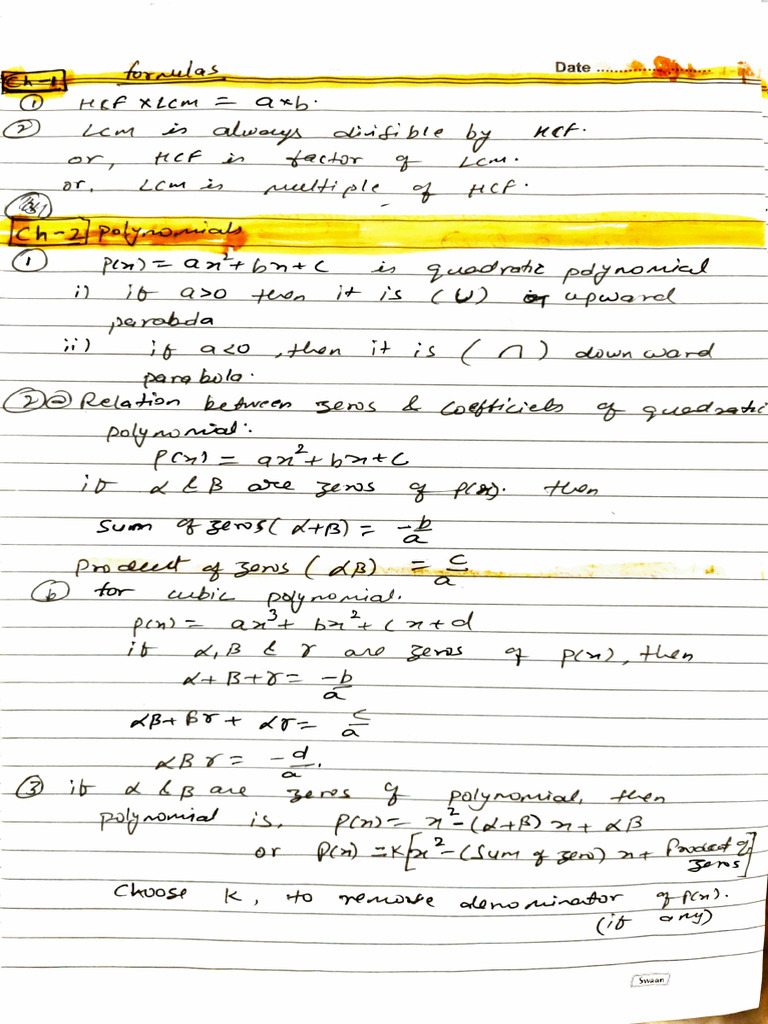 Ch-1 formulas Date
① HCF × LCM = a×b.
② LCM is always divisible by HCF.
or, HCF is factor of LCM.
or, LCM is multiple of HCF.
Ch-2 polynomials
① p(x) = ax² + bx + c is quadratic polynomial
i) if a>0 then it is (∪) upward
parabola
ii) if a<0, then it is (∩) downward
parabola.
② ⓐ Relation between zeros & coefficiets of quadratic
polynomial:
p(x) = ax² + bx + c
if α & β are zeros of p(x). then
sum of zeros (α+β) = -b/a
product of zeros (αβ) = c/a
ⓑ for cubic polynomial.
p(x) = ax³ + bx² + cx + d
if α, β & γ are zeros of p(x), then
α + β + γ = -b/a
αβ + βγ + αγ = c/a
αβγ = -d/a.
③ if α & β are zeros of polynomial, then
polynomial is, p(x) = x² - (α+β)x + αβ
or p(x) = K[x² - (Sum of zero) x + Product of zeros]
Choose K, to remove denominator of p(x).
(if any)
Swaan